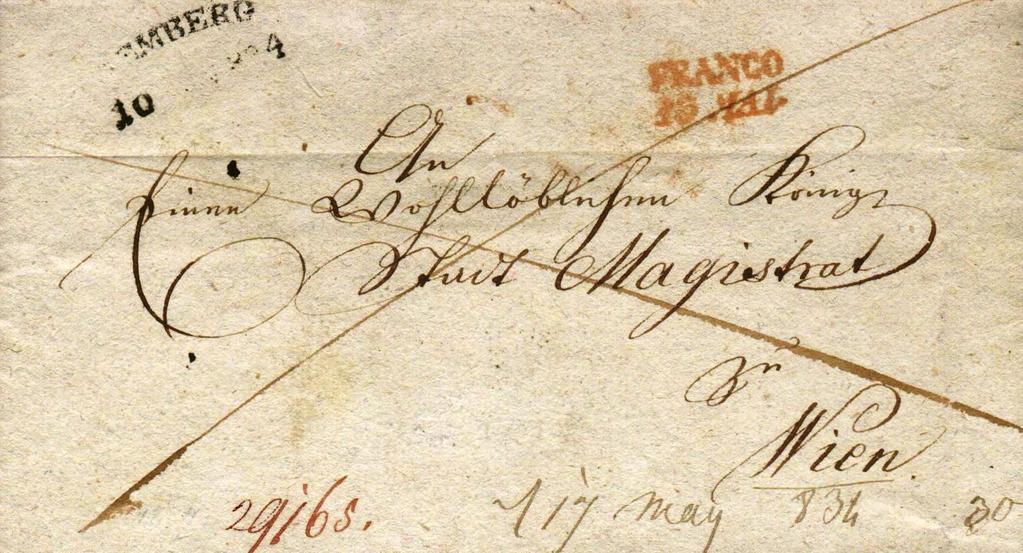 EMBERG
10
FRANCO
An
Einen Wohllöblichen König
Stadt Magistrat
zu
Wien
29165.
17 May 834 30